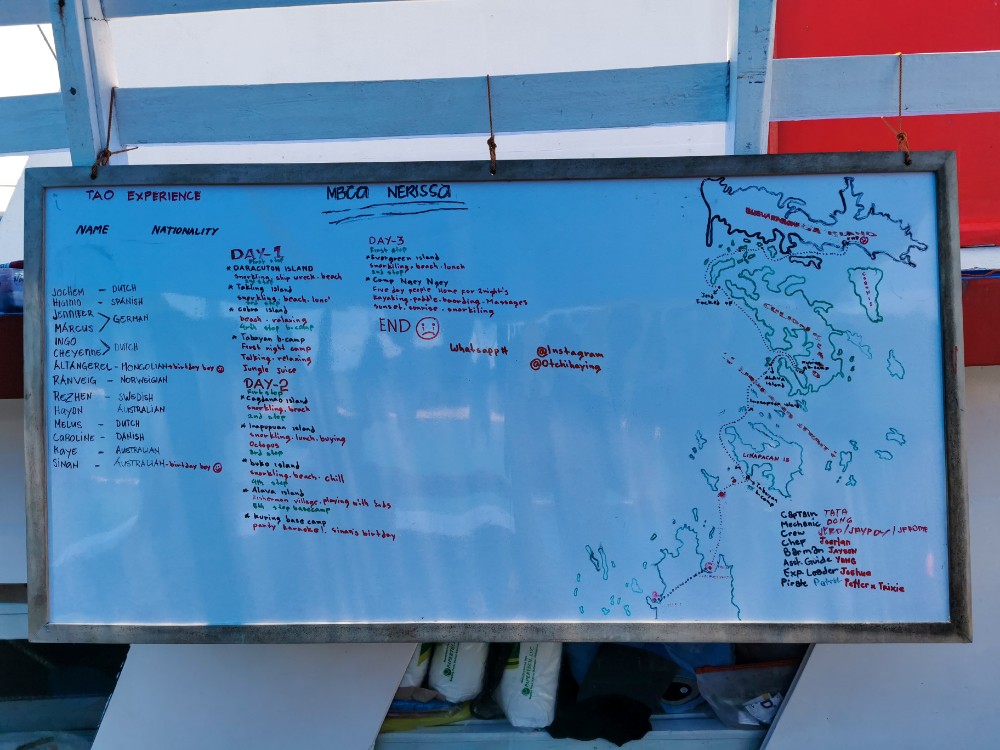 TAO EXPERIENCE
MBCA NERISSA
NAME NATIONALITY
JOCHEM – DUTCH
HIGINIO – SPANISH
JENNIFER
MARCUS > GERMAN
INGO
CHEYENNE > DUTCH
ALTANGEREL – MONGOLIAN - birthday boy
RANVEIG – NORWEIGAN
REZHEN – SWEDISH
HAYDN AUSTRALIAN
MELUS – DUTCH
CAROLINE – DANISH
KAYE – AUSTRALIAN
SINAN – AUSTRALIAN - birthday boy
DAY-1
First stop
* DARACUTON ISLAND
snorkling, ship wreck - beach
* Takling island
snorkling, beach, lunch
3rd stop
* Cobra island
beach - relaxing
4rth stop b-camp
* Tabayan b-camp
First night camp
Talking - relaxing
Jungle juice
DAY-2
First stop
* Cagdanao island
snorkling, beach
2nd stop
* Inapupuan island
snorkling, lunch, buying
Octopus
3rd stop
* buko island
snorkling, beach, chill
4th stop
* Alava island
Fisherman village, playing with kids
5th stop basecamp
* Kuring base camp
party karaoke!, sinan's birthday
DAY-3
First stop
* Evergreen island
snorkiling, beach, lunch
2nd stop
* Camp Ngey Ngey
Five day people home for 2night's
Kayaking - paddle - boarding - Massages
sunset, sunrise - snorkiling
END
Whatsapp#
@Instagram
@Otchikaying
ALAVA
island
LINAPACAN IS
Tabayan
b-camp
Captain TATA
Mechanic DONG
Crew JERD/JAYPOY/JEROME
Chef Joerlan
Barman JAYSON
Asst. Guide YONG
Exp. Leader Joshua
Pirate Patrol Petter n Trixie